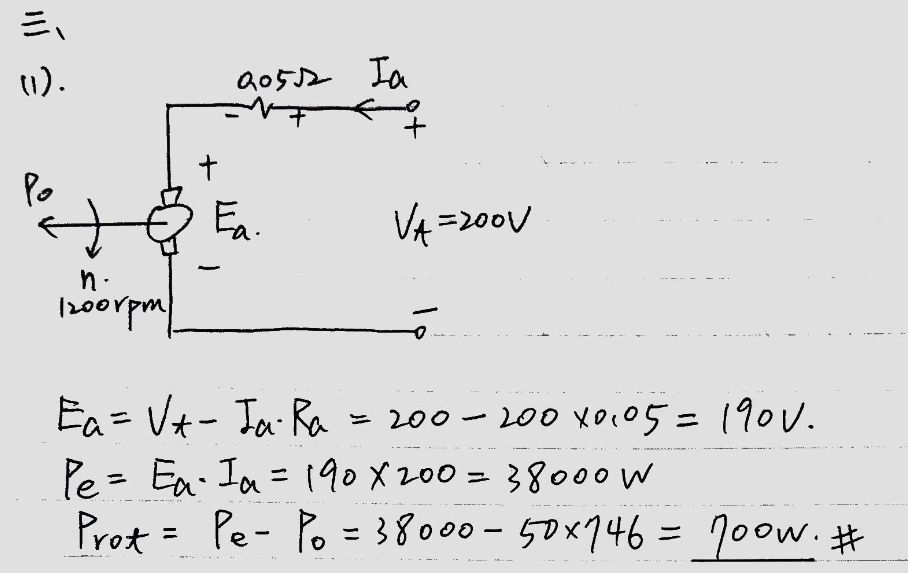 三、
(1).
0.05Ω Ia
- + +
+
Po Ea. Vt=200V
n.
1200rpm
- -
Ea = Vt - Ia·Ra = 200 - 200 x0.05 = 190V.
Pe = Ea·Ia = 190 X 200 = 38000 W
Prot = Pe - Po = 38000 - 50x746 = 700w. #